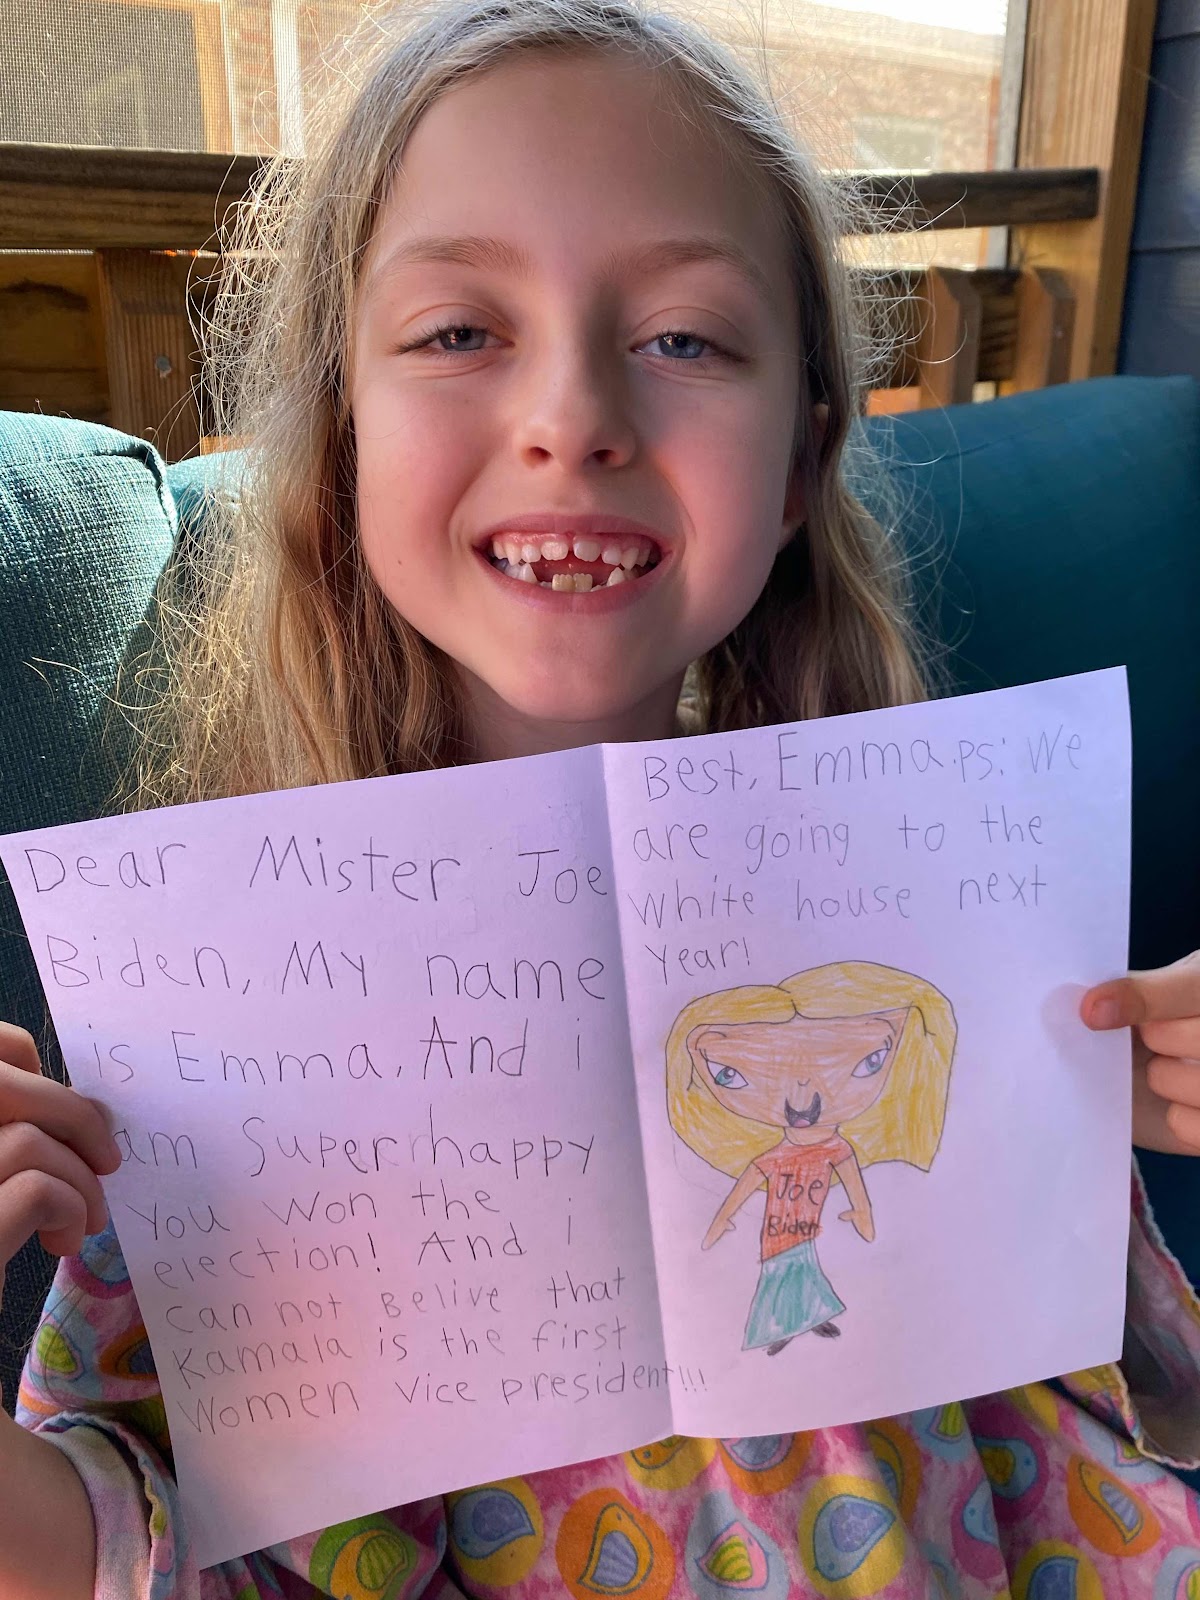 Dear Mister Joe
Biden, My name
is Emma. And i
am Superhappy
You won the
election! And i
can not Belive that
Kamala is the first
Women vice president!!!
Best, Emma. Ps: We
are going to the
White house next
Year!
Joe
Biden